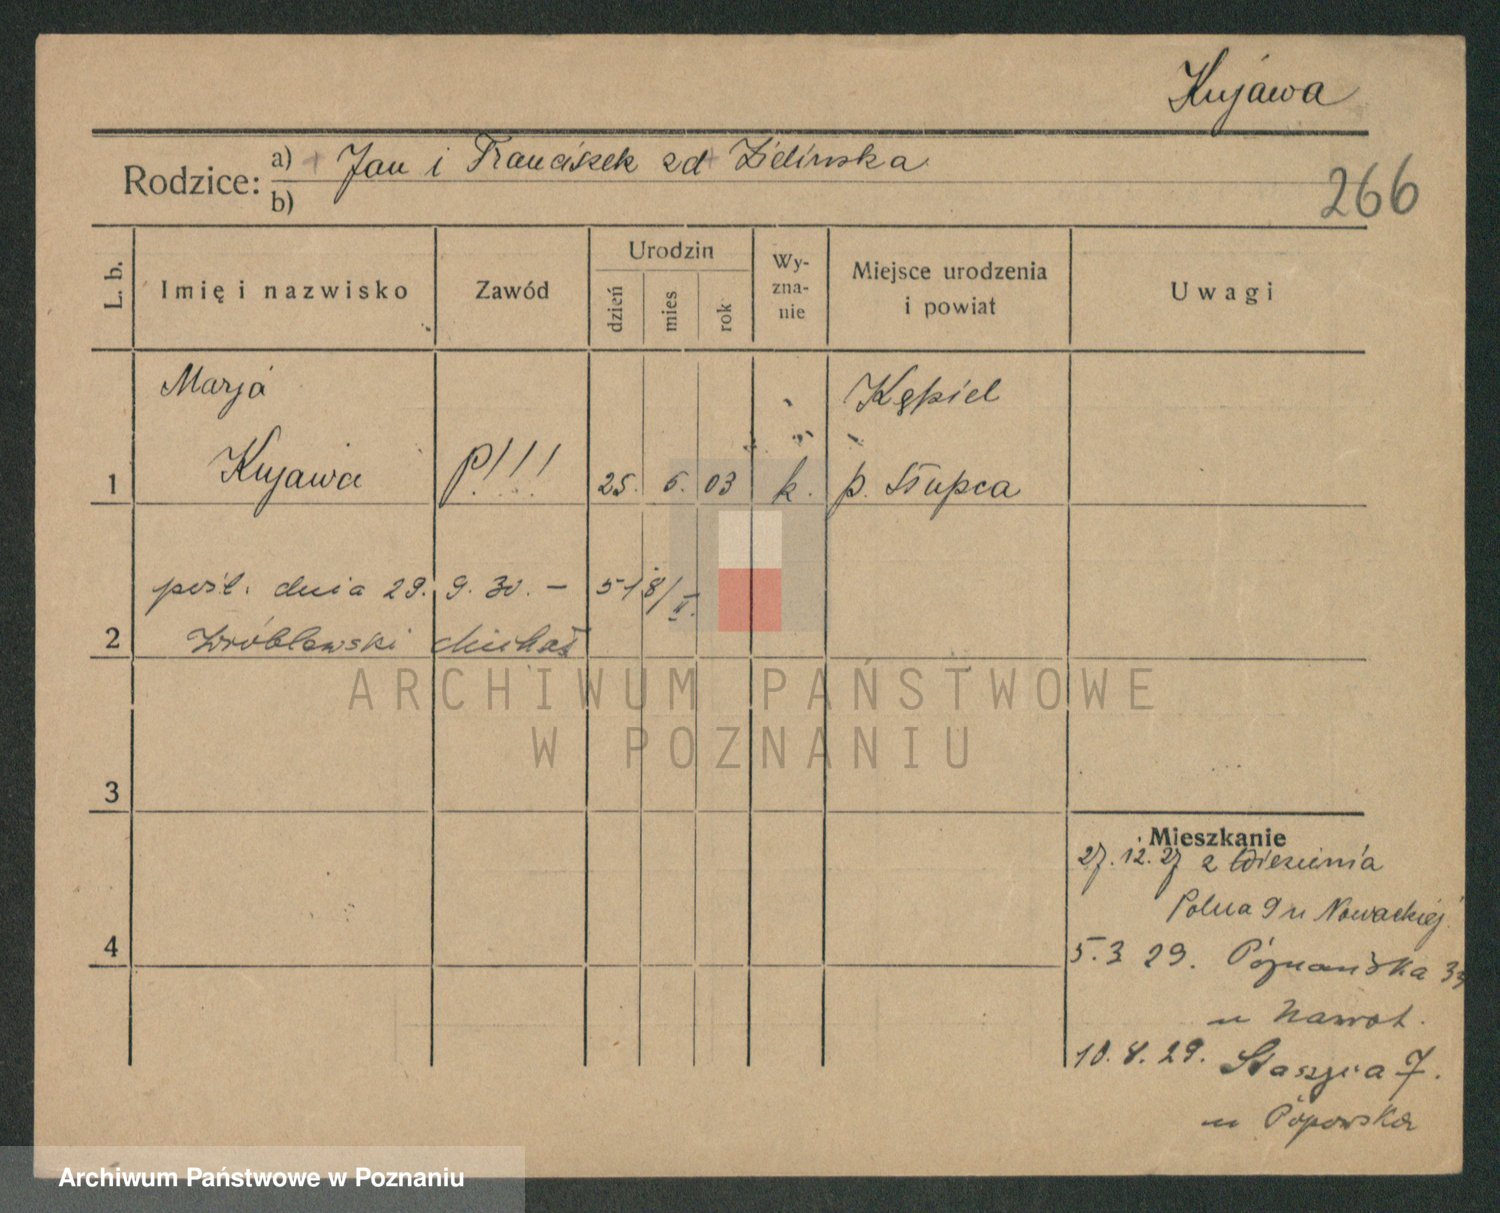 Kujawa
Rodzice: a) + Jan i Franciszek zd Zielinska
b)
266
L. b.
Imię i nazwisko
Zawód
Urodzin
dzień
mies
rok
Wy-
zna-
nie
Miejsce urodzenia
i powiat
Uwagi
Marja
Kujawa
p!!!
25. 6. 03
k.
Kąpiel
p. Słupca
1
pośl. dnia 29. 9. 30. – 518/II.
2 Wróblewski Michał
ARCHIWUM PAŃSTWOWE
W POZNANIU
3
4
Mieszkanie
27. 12. 27 z
Polna 9 u Nowackiej
5. 3 29. Poznańska 33
u Nawrot.
10. 8. 29. Staszyca 7.
u Popowska
Archiwum Państwowe w Poznaniu